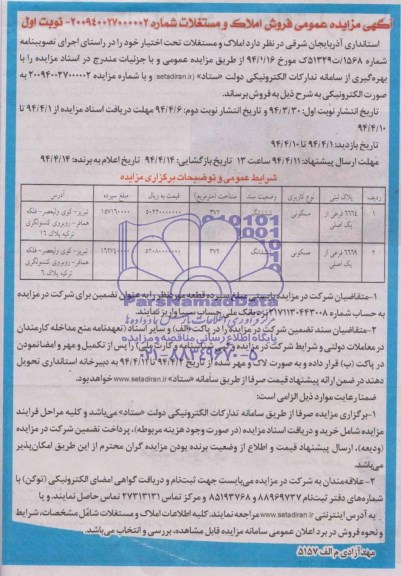 آگهی مزایده عمومی فروش املاک و مستغلات شماره ۲۰۰۹۴۰۰۲۷۰۰۰۰۰۲- نوبت اول
استانداری آذربایجان شرقی در نظر دارد املاک و مستغلات تحت اختیار خود را در راستای اجرای تصویبنامه
شماره ۱۵۶۸/ت۵۱۳۲۹ک مورخ ۹۴/۱/۱۶ از طریق مزایده عمومی و با جزئیات مندرج در اسناد مزایده را با
بهره‌گیری از سامانه تدارکات الکترونیکی دولت «ستاد» (setadiran.ir) و با شماره مزایده ۲۰۰۹۴۰۰۲۷۰۰۰۰۰۲ به
صورت الکترونیکی به شرح ذیل به فروش برساند.
تاریخ انتشار نوبت اول: ۹۴/۳/۳۰ و تاریخ انتشار نوبت دوم: ۹۴/۴/۶ مهلت دریافت اسناد مزایده از ۹۴/۴/۱ تا
۹۴/۴/۱۰
تاریخ بازدید: ۹۴/۴/۱ تا ۹۴/۴/۱۰
مهلت ارسال پیشنهاد: ۹۴/۴/۱۱ ساعت ۱۳ تاریخ بازگشایی: ۹۴/۴/۱۴ تاریخ اعلام به برنده: ۹۴/۴/۱۴
شرایط عمومی و توضیحات برگزاری مزایده
ردیف پلاک ثبتی نوع کاربری وضعیت سند مساحت (مترمربع) قیمت به ریال مبلغ سپرده آدرس
۱ ۶۶۶۴ فرعی از یک اصلی مسکونی ششدانگ ۳۷۲ تبریز- کوی ولیعصر- فلکه همافر- روبروی کنسولگری ترکیه پلاک ۱۶
۲ ۶۶۶۹ فرعی از یک اصلی مسکونی ششدانگ ۳۷۲ تبریز- کوی ولیعصر- فلکه همافر- روبروی کنسولگری ترکیه پلاک ۶
ParsNamadData
۰۲۱-۸۸۳۴۹۶۷۰-۵
پایگاه اطلاع رسانی مناقصه و مزایده
۱-متقاضیان شرکت در مزایده بایستی مبلغ سپرده قطعه موردنظر را به عنوان تضمین برای شرکت در مزایده
به حساب شماره ۲۱۷۱۱۳۰۴۴۳۰۰۸ نزد بانک ملی حساب سیبا واریز نمایند.
۲-متقاضیان سند تضمین شرکت در مزایده را در پاکت (الف) و سایر اسناد (تعهدنامه منع مداخله کارمندان
در معاملات دولتی و شرایط شرکت در مزایده و کپی شناسنامه و کارت ملی) را پس از تکمیل و مهر و امضا نمودن
در پاکت (ب) قرار داده و به صورت لاک و مهر شده از تاریخ ۹۴/۴/۲ تا ۹۴/۴/۱۱ به دبیرخانه استانداری تحویل
دهند در ضمن ارائه پیشنهاد قیمت صرفا از طریق سامانه «ستاد» www.setadiran.ir خواهد بود.
ضمنا رعایت موارد ذیل الزامی است:
۱-برگزاری مزایده صرفا از طریق سامانه تدارکات الکترونیکی دولت «ستاد» می‌باشد و کلیه مراحل فرایند
مزایده شامل خرید و دریافت اسناد مزایده (در صورت وجود هزینه مربوطه)، پرداخت تضمین شرکت در مزایده
(ودیعه)، ارسال پیشنهاد قیمت و اطلاع از وضعیت برنده بودن مزایده گران محترم از این طریق امکان‌پذیر
می‌باشد.
۲-علاقه‌مندان به شرکت در مزایده می‌بایست جهت ثبت‌نام و دریافت گواهی امضای الکترونیکی (توکن) با
شماره‌های دفتر ثبت‌نام ۸۸۹۶۹۷۳۷ و ۸۵۱۹۳۷۶۸ و مرکز تماس ۲۷۳۱۳۱۳۱ تماس حاصل نمایند. و یا
به آدرس اینترنتی www.setadiran.ir مراجعه نمایند. کلیه اطلاعات املاک و مستغلات شامل مشخصات، شرایط
و نحوه فروش در برد اعلان عمومی سامانه مزایده قابل مشاهده، بررسی و انتخاب می‌باشد.
مهد آزادی م الف ۵۱۵۷